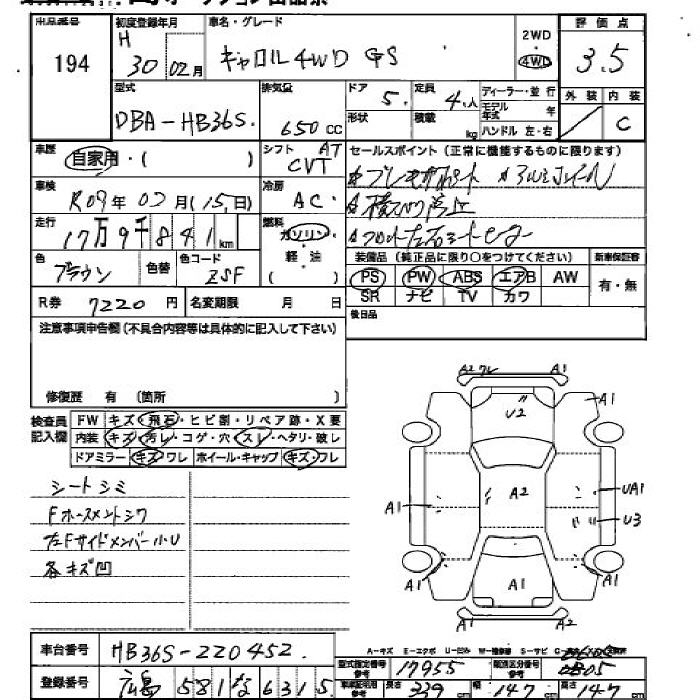 出品番号 初度登録年月 車名・グレード 2WD 4WD 評価点
194 H 30 02月 キャロル4WD GS 3.5
型式 排気量 ドア 定員 ディーラー・並行 外装 内装
DBA-HB36S. 650cc 5. 4.人 モデル年式 年 C
形状 積載 kg ハンドル 左・右
車歴 自家用・( ) シフト AT CVT セールスポイント(正常に機能するものに限ります)
車検 R09年 02月(15日) 冷房 AC.
走行 17万9千841km 燃料 ガソリン・軽・油 ( )
色 ブラウン 色替 色コード ZSF 装備品(純正品に限り○をつけてください) 新車保証書
PS PW ABS エアB AW 有・無
SR ナビ TV カワ
R券 7220円 名変期限 月 日 後日品
注意事項申告欄(不具合内容等は具体的に記入して下さい)
修復歴 有 〔箇所 〕
検査員記入欄 FW キズ・飛石・ヒビ割・リペア跡・X要
内装 キズ・汚レ・コゲ・穴・スレ・ヘタリ・破レ
ドアミラー キズ・ワレ ホイール・キャップ キズ・ワレ
シートシミ
Fホースメントシワ
左Fサイドメンバー小U
各キズ凹
A2 ワレ A1
A1
U2
A1 A2 UA1
U3
A1 A1 A1
A1 A2
A-キズ E-エクボ U-凹み W-補修跡 S-サビ
車台番号 HB36S-220452. 型式指定番号 参考 17955 類別区分番号 参考
登録番号 広島 581 な 6315 長さ 339cm 幅 147cm 高さ 147cm